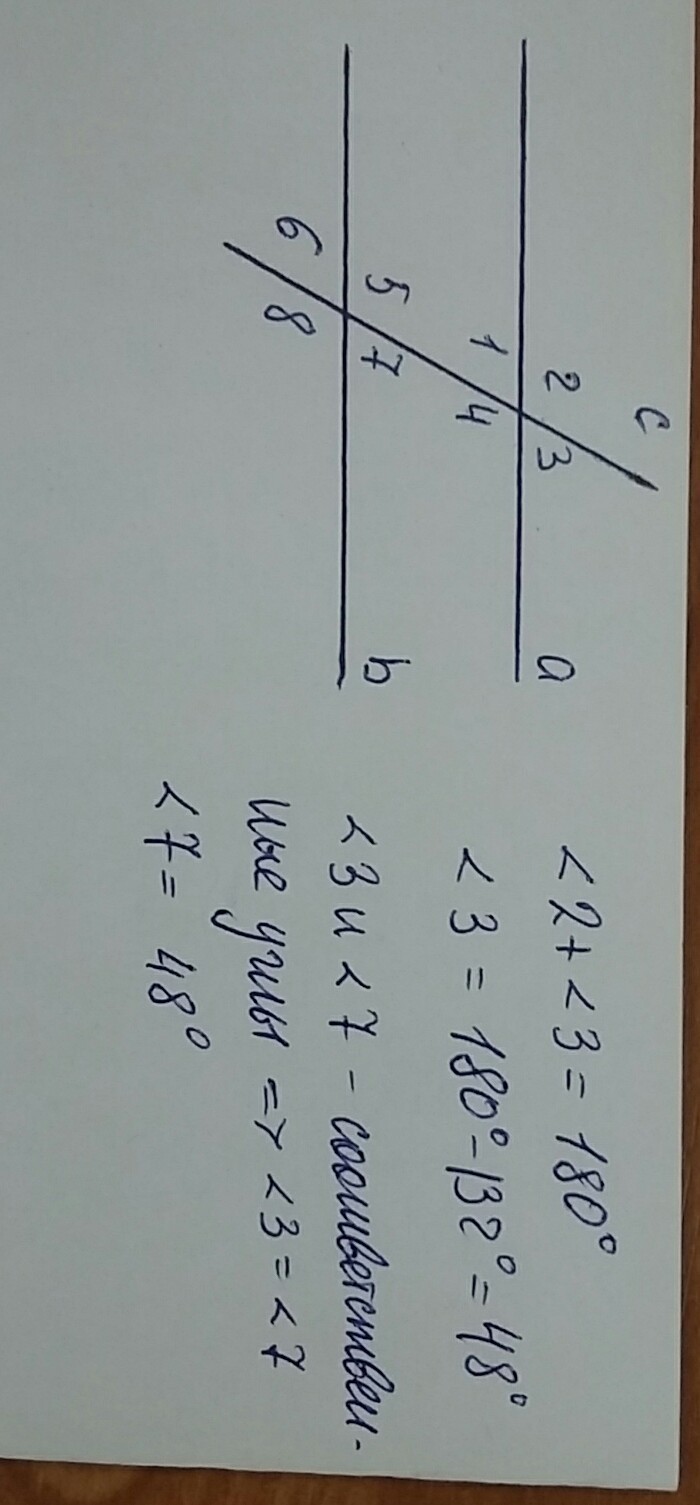 c
2 3
a
1 4
5 7
b
6 8
<2+<3=180°
<3=180°-132°=48°
<3 и <7 - соответствен-
ные углы => <3=<7
<7= 48°